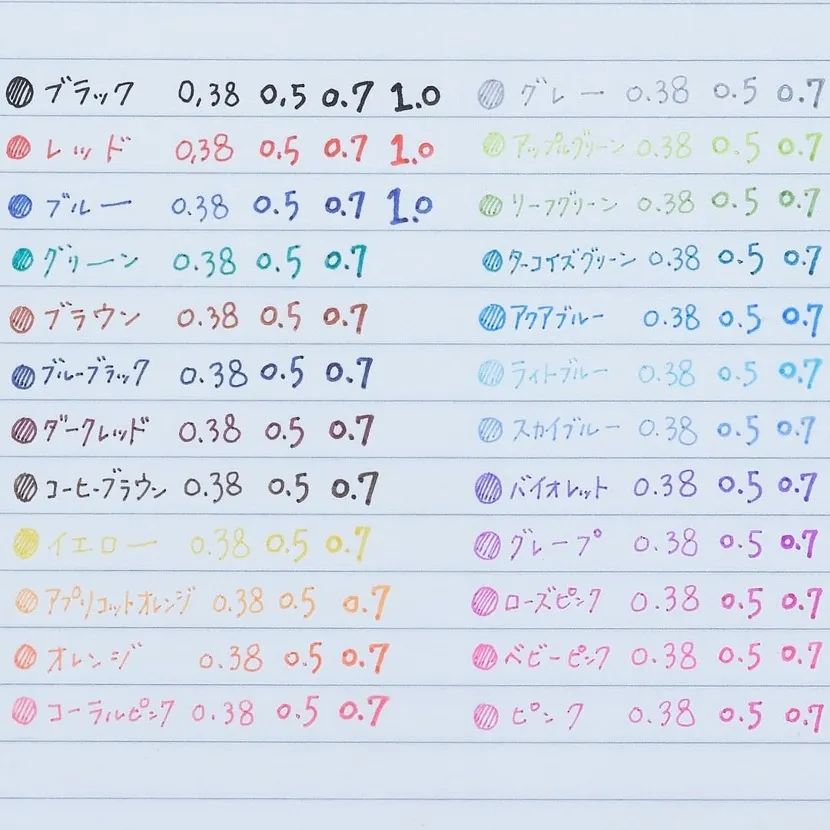 ブラック 0.38 0.5 0.7 1.0
レッド 0.38 0.5 0.7 1.0
ブルー 0.38 0.5 0.7 1.0
グリーン 0.38 0.5 0.7
ブラウン 0.38 0.5 0.7
ブルーブラック 0.38 0.5 0.7
ダークレッド 0.38 0.5 0.7
コーヒーブラウン 0.38 0.5 0.7
イエロー 0.38 0.5 0.7
アプリコットオレンジ 0.38 0.5 0.7
オレンジ 0.38 0.5 0.7
コーラルピンク 0.38 0.5 0.7
グレー 0.38 0.5 0.7
アップルグリーン 0.38 0.5 0.7
リーフグリーン 0.38 0.5 0.7
ターコイズグリーン 0.38 0.5 0.7
アクアブルー 0.38 0.5 0.7
ライトブルー 0.38 0.5 0.7
スカイブルー 0.38 0.5 0.7
バイオレット 0.38 0.5 0.7
グレープ 0.38 0.5 0.7
ローズピンク 0.38 0.5 0.7
ベビーピンク 0.38 0.5 0.7
ピンク 0.38 0.5 0.7